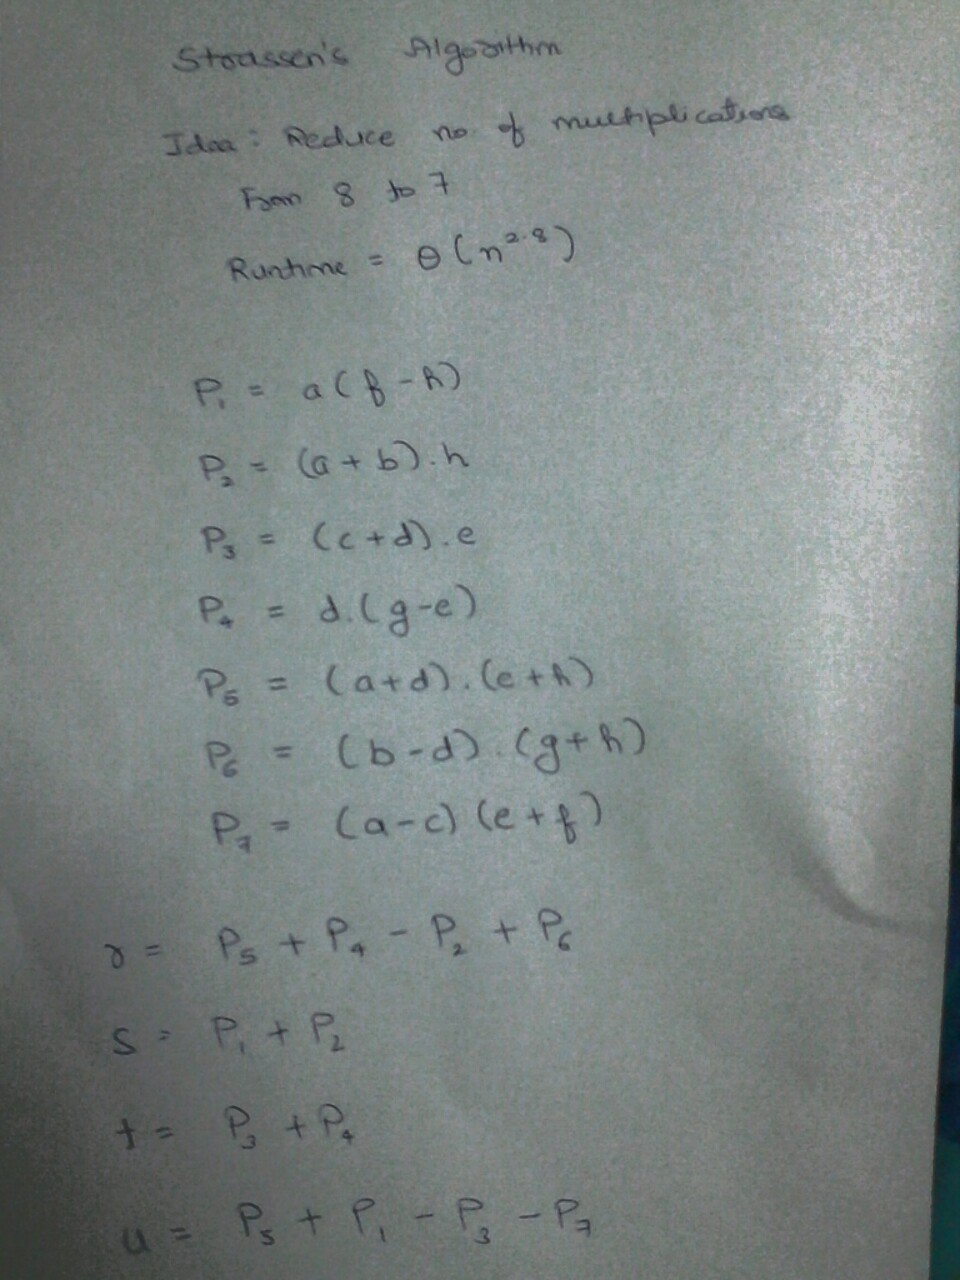 Strassen's Algorithm
Idea: Reduce no of multiplications
From 8 to 7
Runtime = Θ(n^2.8)
P₁ = a(f-h)
P₂ = (a+b).h
P₃ = (c+d).e
P₄ = d.(g-e)
P₅ = (a+d).(e+h)
P₆ = (b-d).(g+h)
P₇ = (a-c)(e+f)
r = P₅ + P₄ - P₂ + P₆
s = P₁ + P₂
t = P₃ + P₄
u = P₅ + P₁ - P₃ - P₇